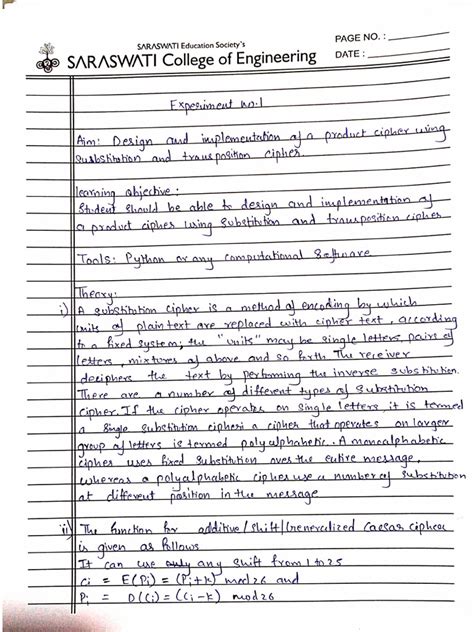 SARASWATI Education Society's
SARASWATI College of Engineering
PAGE NO. :
DATE :
Experiment no.1
Aim: Design and implementation of a product cipher using
Susbstitution and transposition cipher.
learning objective :
Student should be able to design and implementation of
a product cipher using Substitution and transposition cipher
Tools: Python or any computational Software
Theory:
i) A substitution cipher is a method of encoding by which
units of plaintext are replaced with cipher text, according
to a fixed system; the "units" may be single letters, pairs of
letters, mixtures of above and so forth The receiver
deciphers the text by performing the inverse substitution.
There are a number of different types of Substitution
cipher. If the cipher operates on single letters, it is termed
a single substitution cipher; a cipher that operates on larger
group of letters is termed polyalphabetic. A monoalphabetic
cipher uses fixed Substitution over the entire message,
whereas a polyalphabetic cipher use a number of Substitution
at different position in the message
ii) The function for additive/shift/Generalized Caesar cipher
is given as follows
It can use only any shift from 1 to 25
Ci = E(Pi) = (Pi+k) mod 26 and
Pi = D(Ci) = (Ci-k) mod 26